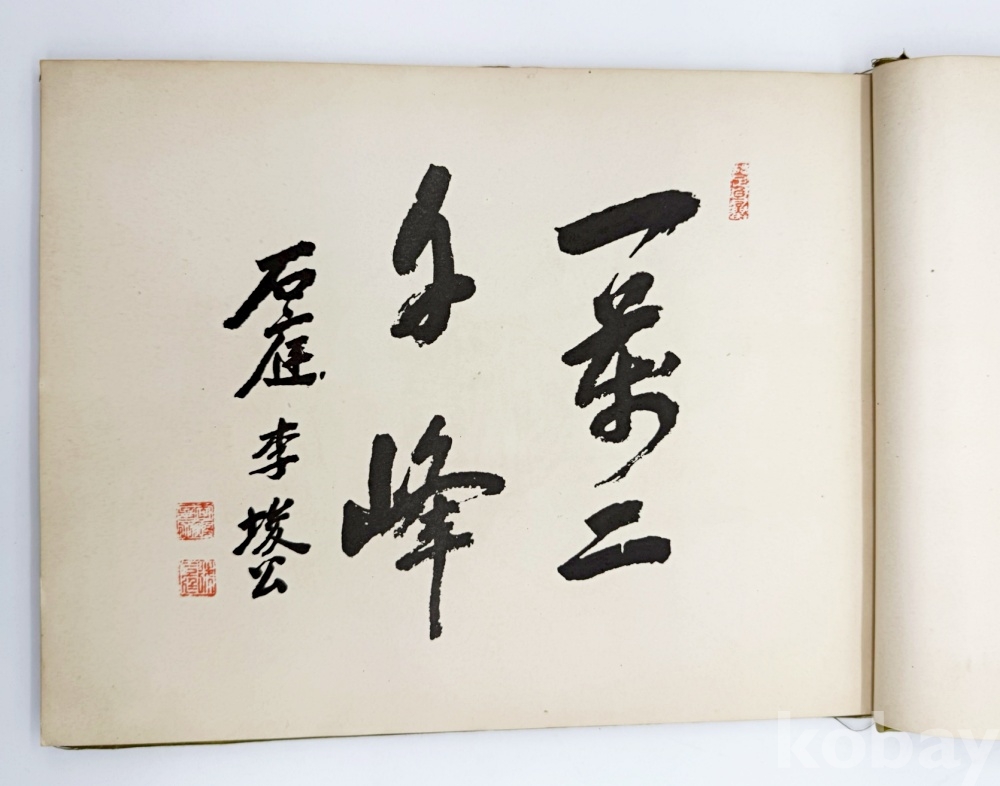 一萬二
千峰
石庭 李埈公
kobay